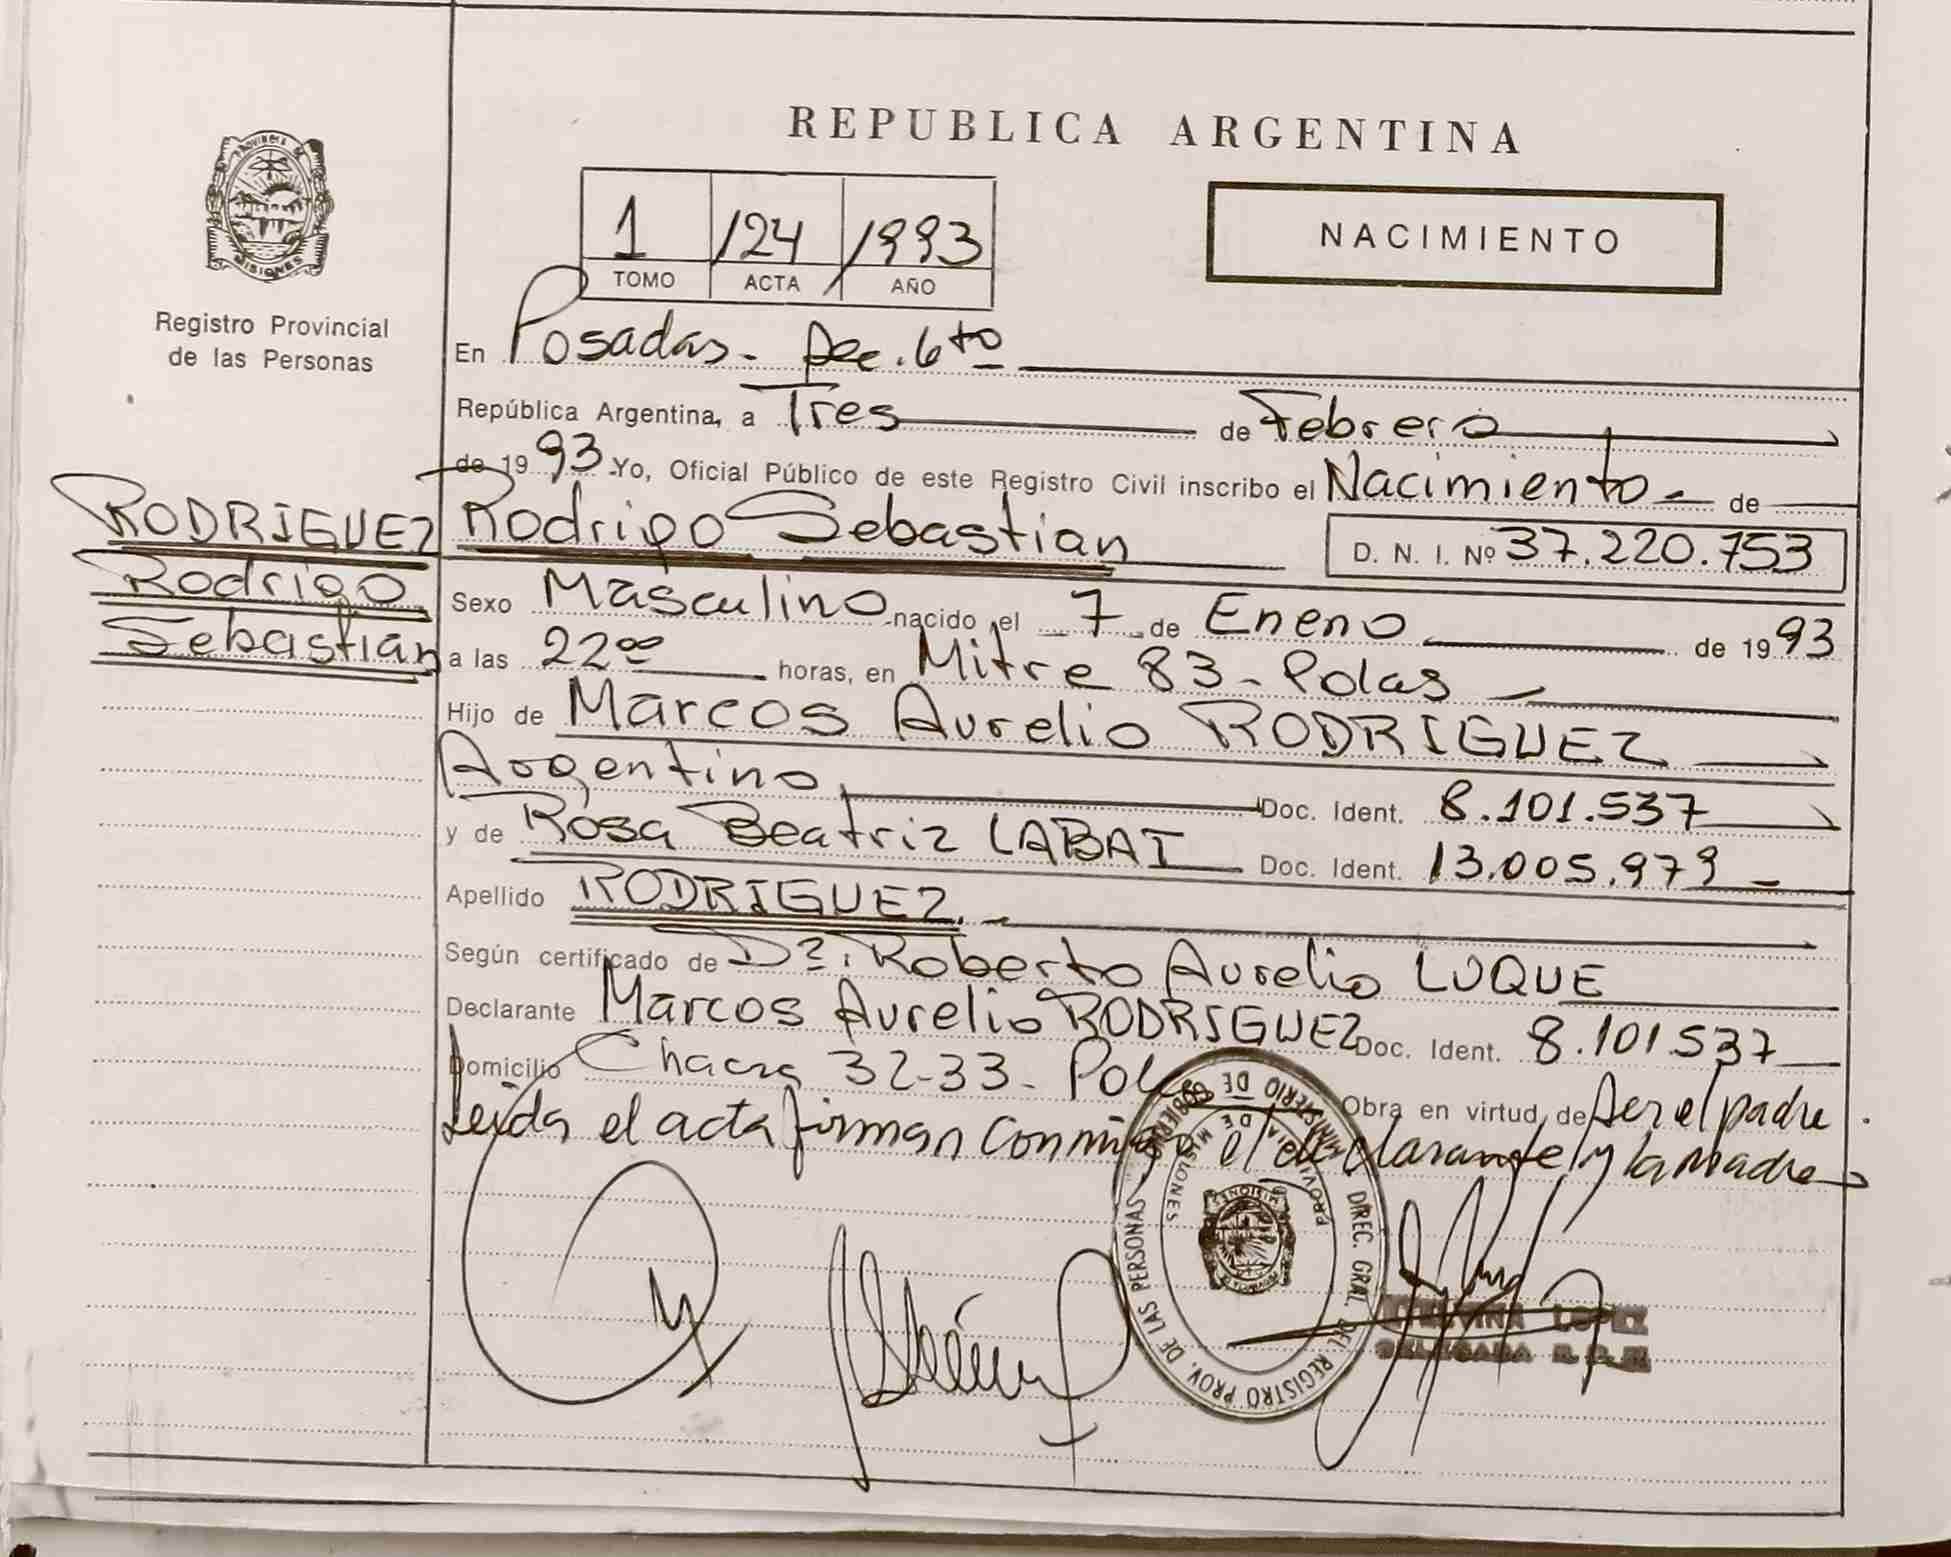 REPUBLICA ARGENTINA
PROVINCIA DE
MISIONES
Registro Provincial
de las Personas
1 124 1993
TOMO ACTA AÑO
NACIMIENTO
En Posadas - Sec. 6to
República Argentina, a Tres de Febrero
de 1993 Yo, Oficial Público de este Registro Civil inscribo el Nacimiento - de
RODRIGUEZ
Rodrigo
Sebastian
Rodrigo Sebastian D. N. I. Nº 37.220.753
Sexo Masculino nacido el 7 de Enero de 1993
a las 22 00 horas, en Mitre 83 - Pdas
Hijo de Marcos Aurelio RODRIGUEZ
Argentino Doc. Ident. 8.101.537
y de Rosa Beatriz LABAT Doc. Ident. 13.005.979 -
Apellido RODRIGUEZ. -
Según certificado de Dr. Roberto Aurelio LUQUE
Declarante Marcos Aurelio RODRIGUEZ Doc. Ident. 8.101.537
Domicilio Chacra 32-33 - Obra en virtud de ser el padre.
Leida el acta firman conmigo el declarante y la madre
MINISTERIO DE GOBIERNO
DIREC. GRAL. DEL REGISTRO PROV. DE LAS PERSONAS
PROVINCIA DE MISIONES
LOPEZ
DELEGADA